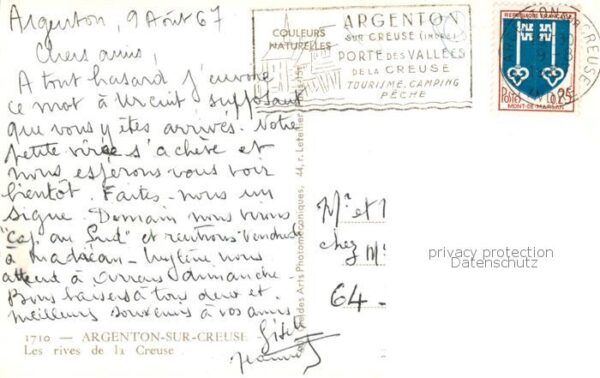 Argenton, 9 Août 67
Chers amis,
A tout hasard j'envoie
ce mot à Urcuit supposant
que vous y êtes arrivés. Notre
petite virée s'achève et
nous espérons vous voir
bientôt. Faites-nous un
signe. Demain nous virons
"Cap au Sud" et rentrons vendredi
à nous
attend à dimanche-
Bons baisers à tous deux et
meilleurs souvenirs à vos amis
Gisèle
1710 — ARGENTON-SUR-CREUSE
Les rives de la Creuse
44, r. Letellier
des Arts Photomécaniques,
COULEURS
NATURELLES
ARGENTON
SUR CREUSE (INDRE)
PORTE DES VALLÉES
DE LA CREUSE
TOURISME, CAMPING
PÊCHE
REPUBLIQUE FRANCAISE
Postes 0,25
MONT-DE-MARSAN
CREUSE
Mr et
chez Mr
64-
privacy protection
Datenschutz